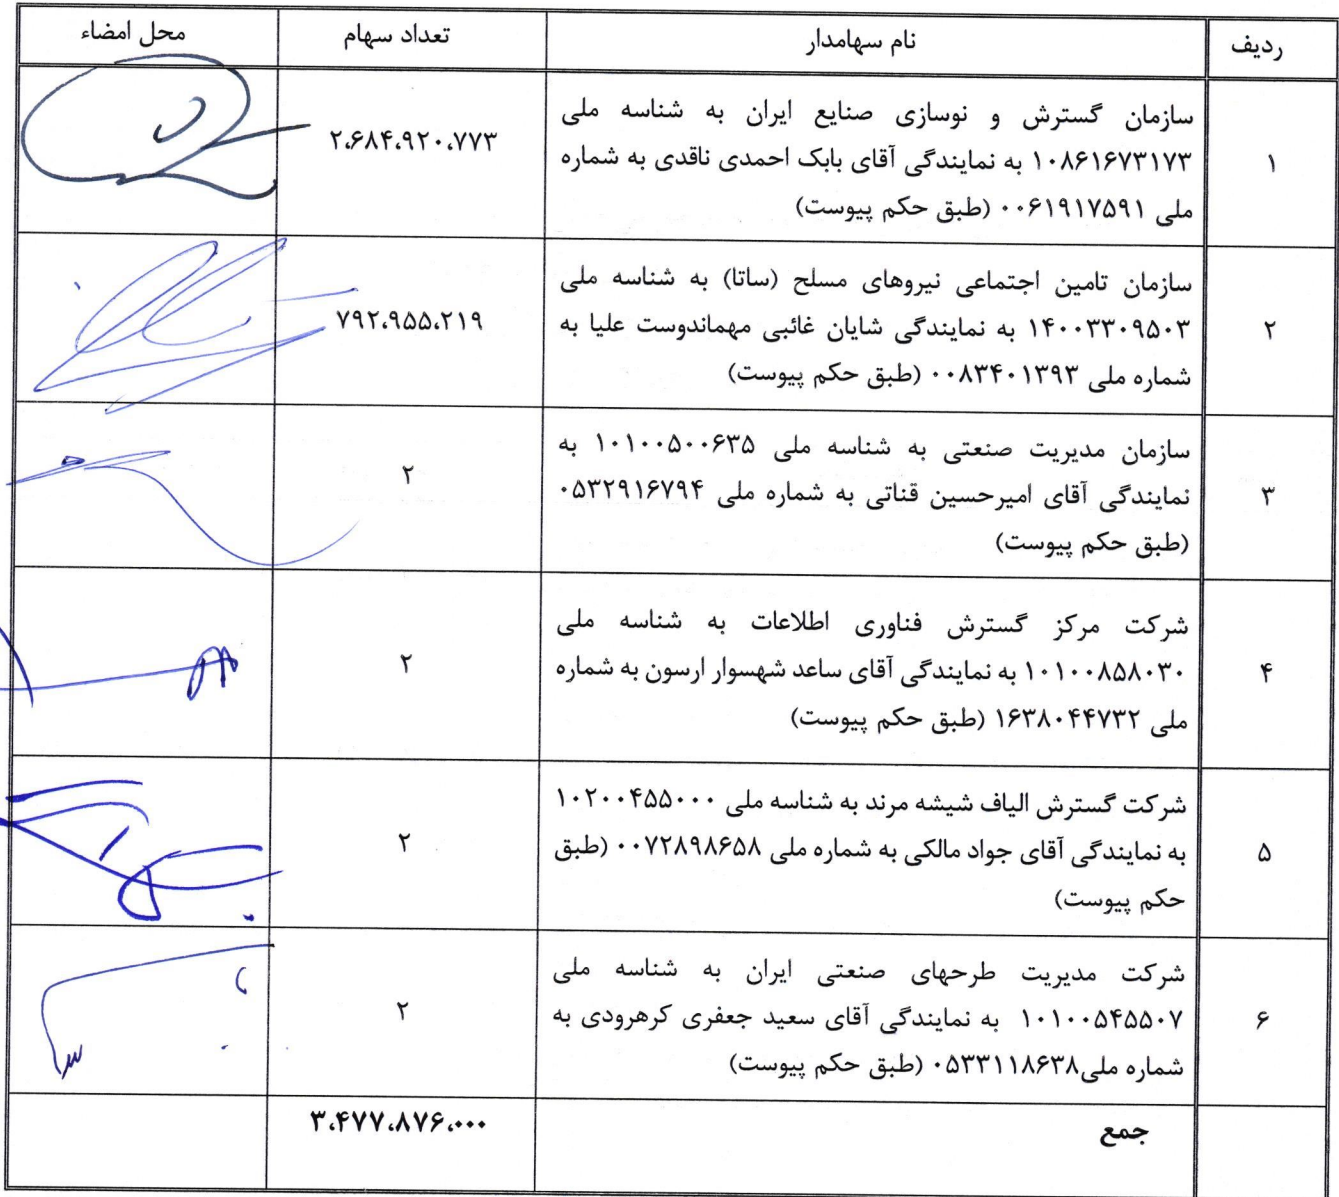 ردیف نام سهامدار تعداد سهام محل امضاء
۱ سازمان گسترش و نوسازی صنایع ایران به شناسه ملی
۱۰۸۶۱۶۷۳۱۷۳ به نمایندگی آقای بابک احمدی ناقدی به شماره ۲،۶۸۴،۹۲۰،۷۷۳
ملی ۰۰۶۱۹۱۷۵۹۱ (طبق حکم پیوست)
سازمان تامین اجتماعی نیروهای مسلح (ساتا) به شناسه ملی
۲ ۱۴۰۰۳۳۰۹۵۰۳ به نمایندگی شایان غائبی مهماندوست علیا به ۷۹۲،۹۵۵،۲۱۹
شماره ملی ۰۰۸۳۴۰۱۳۹۳ (طبق حکم پیوست)
سازمان مدیریت صنعتی به شناسه ملی ۱۰۱۰۰۵۰۰۶۳۵ به
۳ نمایندگی آقای امیرحسین قناتی به شماره ملی ۰۵۳۲۹۱۶۷۹۴ ۲
(طبق حکم پیوست)
شرکت مرکز گسترش فناوری اطلاعات به شناسه ملی
۴ ۱۰۱۰۰۸۵۸۰۳۰ به نمایندگی آقای ساعد شهسوار ارسون به شماره ۲
ملی ۱۶۳۸۰۴۴۷۳۲ (طبق حکم پیوست)
شرکت گسترش الیاف شیشه مرند به شناسه ملی ۱۰۲۰۰۴۵۵۰۰۰
۵ به نمایندگی آقای جواد مالکی به شماره ملی ۰۰۷۲۸۹۸۶۵۸ (طبق ۲
حکم پیوست)
شرکت مدیریت طرحهای صنعتی ایران به شناسه ملی
۶ ۱۰۱۰۰۵۴۵۵۰۷ به نمایندگی آقای سعید جعفری کرهرودی به ۲
شماره ملی۰۵۳۳۱۱۸۶۳۸ (طبق حکم پیوست)
جمع ۳،۴۷۷،۸۷۶،۰۰۰